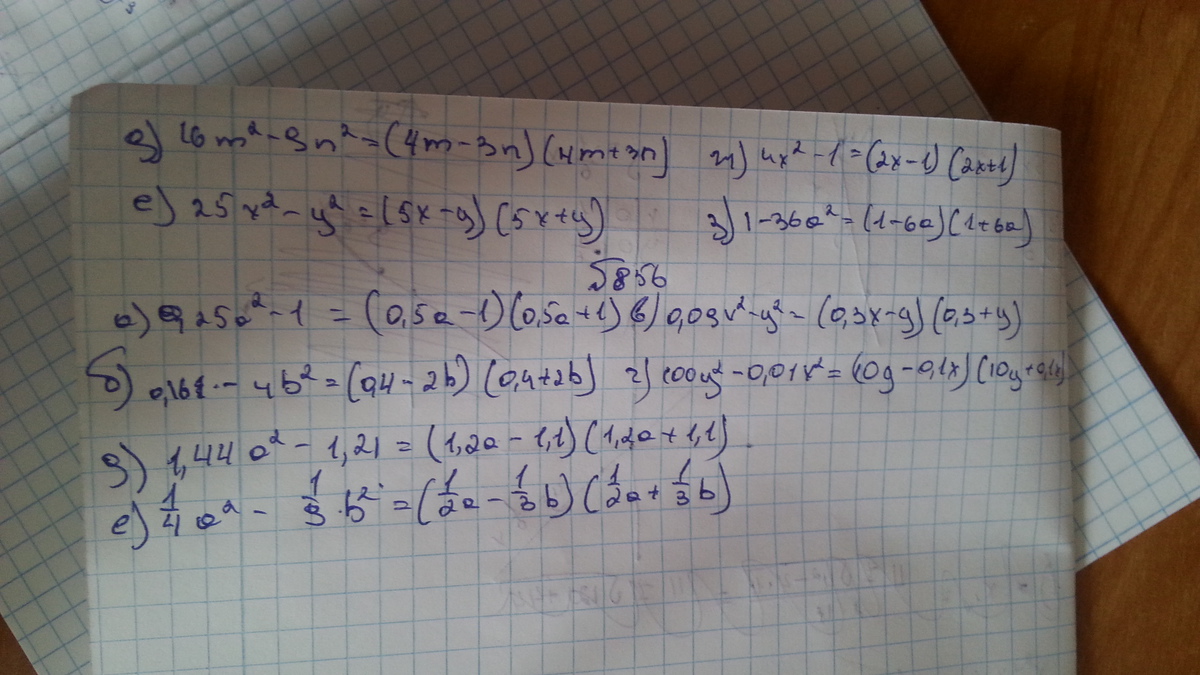 д) 16m² - 9n² = (4m - 3n) (4m + 3n) ж) 4x² - 1 = (2x - 1) (2x + 1)
е) 25x² - y² = (5x - y) (5x + y) з) 1 - 36a² = (1 - 6a) (1 + 6a)
856
а) 0,25a² - 1 = (0,5a - 1) (0,5a + 1) в) 0,09x² - y² = (0,3x - y) (0,3 + y)
б) 0,16 - 4b² = (0,4 - 2b) (0,4 + 2b) г) 100y² - 0,01x² = (10y - 0,1x) (10y + 0,1x)
д) 1,44a² - 1,21 = (1,2a - 1,1) (1,2a + 1,1)
е) 1/4 a² - 1/9 · b² = (1/2 a - 1/3 b) (1/2 a + 1/3 b)